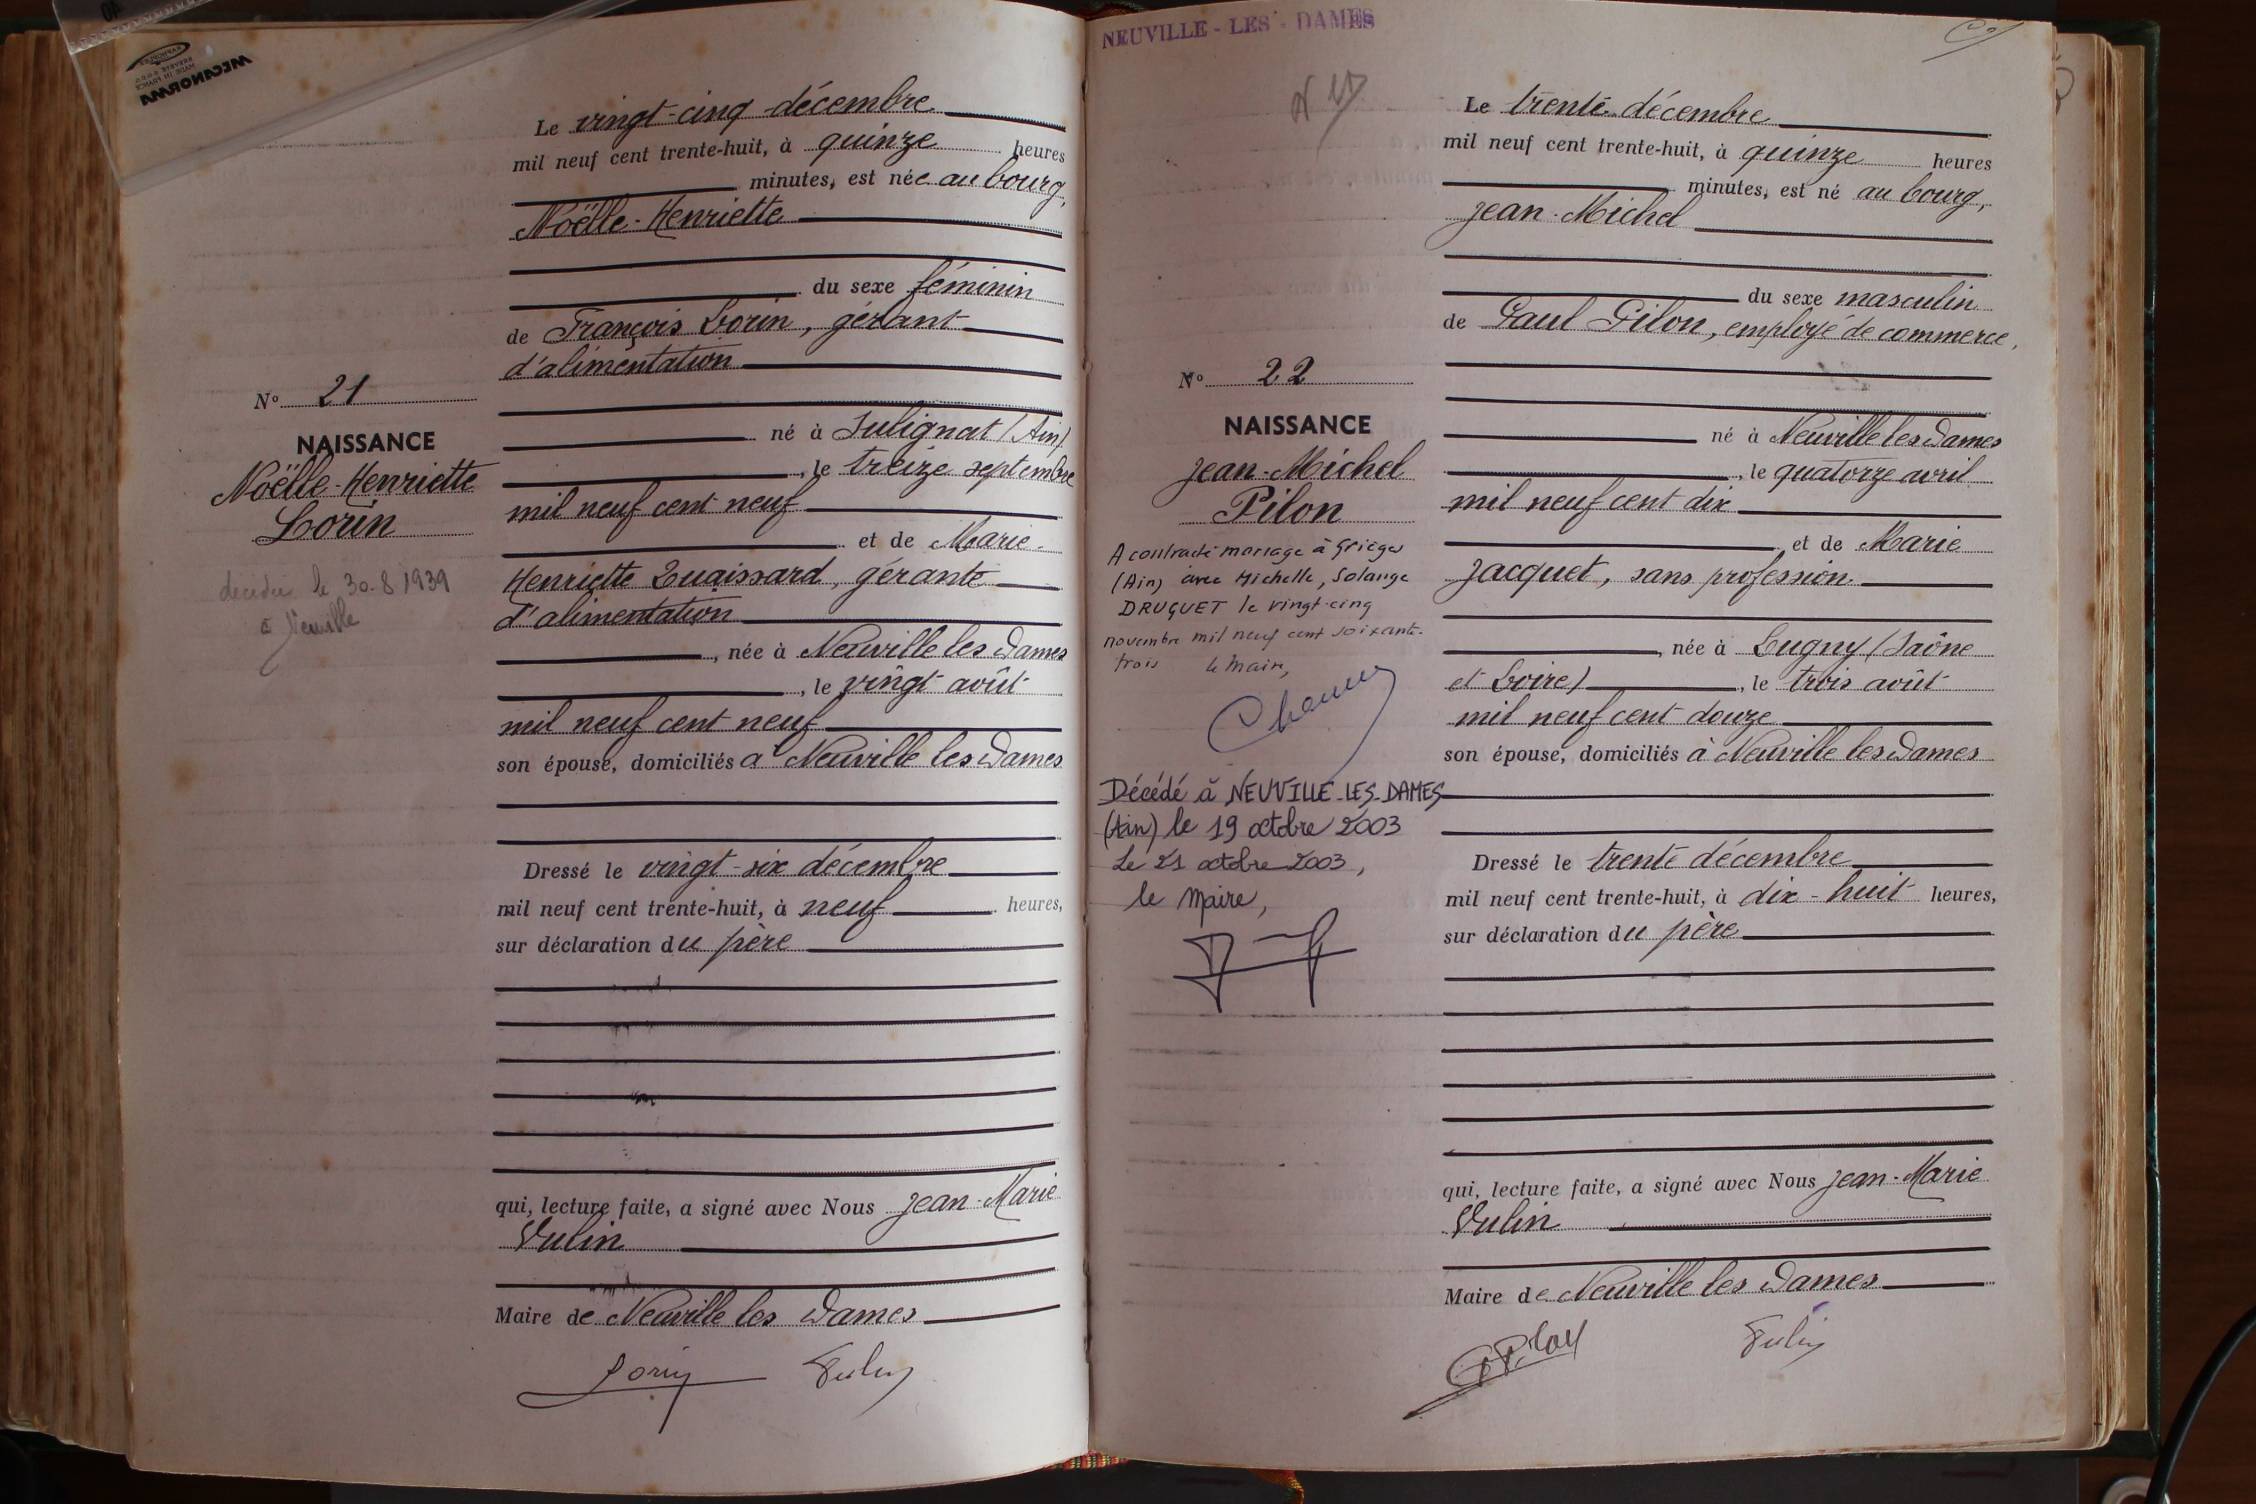 MECANORMA
Le vingt-cinq décembre
mil neuf cent trente-huit, à quinze heures
minutes, est née au bourg,
Noëlle-Henriette
du sexe féminin
de François Lorin, gérant
d'alimentation
né à Sulignat (Ain)
, le treize septembre
mil neuf cent neuf
et de Marie-
Henriette Quaissard, gérante
d'alimentation
, née à Neuville les Dames
, le vingt août
mil neuf cent neuf
son épouse, domiciliés à Neuville les Dames
Dressé le vingt-six décembre
mil neuf cent trente-huit, à neuf heures,
sur déclaration du père
qui, lecture faite, a signé avec Nous Jean-Marie
Vulin
Maire de Neuville les Dames
Lorin Vulin
No 21
NAISSANCE
Noëlle-Henriette
Lorin
décédée le 30.8.1939
à Neuville
NEUVILLE-LES-DAMES
Le trente décembre
mil neuf cent trente-huit, à quinze heures
minutes, est né au bourg,
Jean-Michel
du sexe masculin
de Paul Pilon, employé de commerce,
né à Neuville les Dames
, le quatorze avril
mil neuf cent dix
et de Marie
Jacquet, sans profession
, née à Lugny (Saône
et Loire) , le trois août
mil neuf cent douze
son épouse, domiciliés à Neuville les Dames
Dressé le trente décembre
mil neuf cent trente-huit, à dix-huit heures,
sur déclaration du père
qui, lecture faite, a signé avec Nous Jean-Marie
Vulin
Maire de Neuville les Dames
Pilon Vulin
No 22
NAISSANCE
Jean-Michel
Pilon
A contracté mariage à Grièges
(Ain) avec Michelle, Solange
DRUGUET le vingt-cinq
novembre mil neuf cent soixante-
trois le Maire,
Décédé à NEUVILLE-LES-DAMES
(Ain) le 19 octobre 2003
Le 21 octobre 2003,
le Maire,